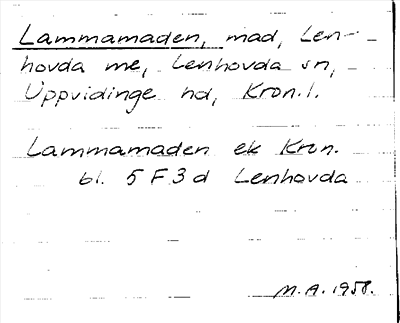 Lammamaden, mad, Len-
hovda me, Lenhovda sn,
Uppvidinge hd, Kron.l.
Lammamaden ek Kron.
bl. 5 F 3 d Lenhovda
M.A. 1958.